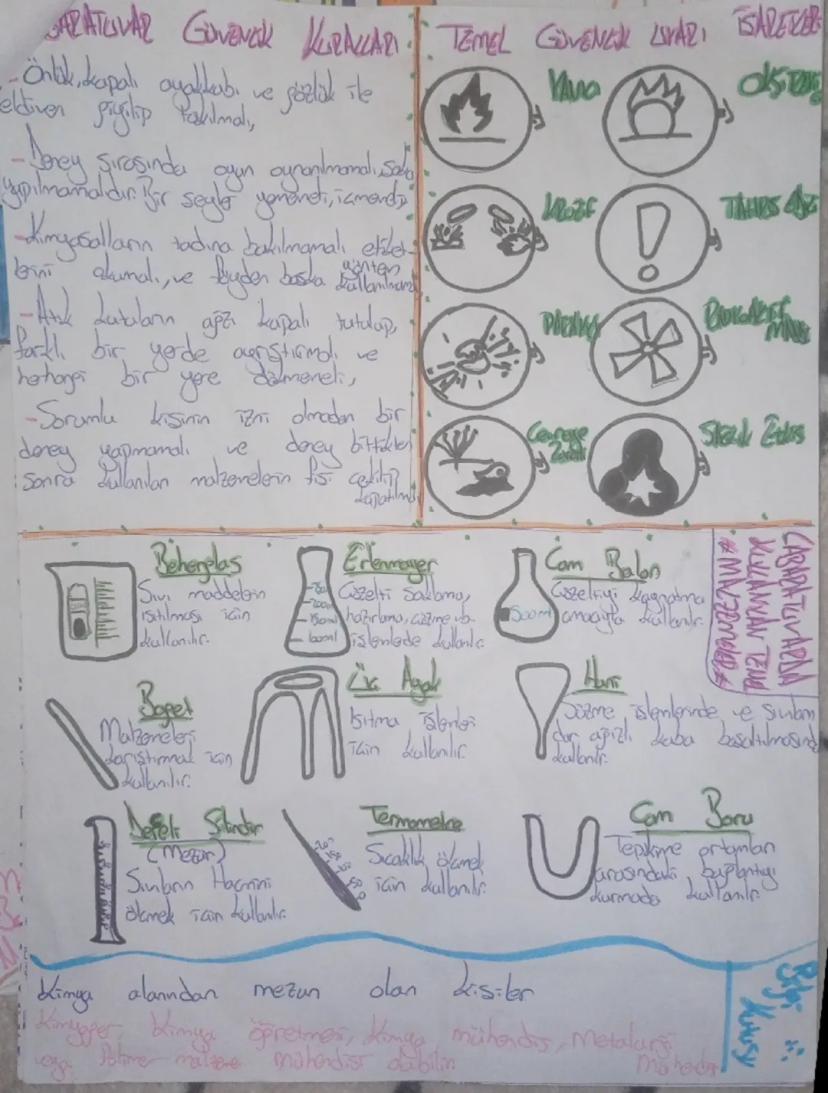 LABARATUVAR GÜVENLİK KURALLARI
- Önlük, kapalı ayakkabı ve gözlük ile
eldiven giyilip takılmalı,
- Deney sırasında oyun oynanılmamalı, şaka
yapılmamalıdır. Bir şeyler yenmemeli, içmemeli,
- Kimyasalların tadına bakılmamalı etiket-
lerini okumalı, ve
- Atık kutuların ağzı kapalı tutulup,
farklı bir yerde ayrıştırmalı ve
herhangi bir yere dökmemeli,
- Sorumlu kişinin izni olmadan bir
deney yapmamalı ve deney bittikten
sonra kullanılan malzemelerin fişi çekilip
kapatılmalı
TEMEL GÜVENLİK UYARI İŞARETLERİ
YANICI
TAHRİŞ EDİCİ
LABARATUVARDA
KULLANILAN TEMEL
#MALZEMELER#
Beherglas
Sıvı maddelerin
ısıtılması için
kullanılır.
Erlenmayer
Çözelti saklama,
hazırlama, çözme vb.
işlemlerde kullanılır.
250
200ml
150ml
100ml
Cam Balon
Çözeltiyi kaynatma
amacıyla kullanılır.
500ml
Baget
Malzemeleri
karıştırmak için
kullanılır.
Üç Ayak
Isıtma işlemleri
için kullanılır.
Huni
Süzme işlemlerinde ve sıvıların
dar ağızlı kaba boşaltılmasında
kullanılır.
Dereceli Silindir
(Mezür)
Sıvıların Hacmini
ölçmek için kullanılır.
Termometre
Sıcaklık ölçmek
için kullanılır.
Cam Boru
Tepkime ortamları
arasındaki bağlantıyı
kurmada kullanılır.
Bilgi
Kutusu
Kimya alanından mezun olan kişiler
Kimyager, kimya öğretmeni, kimya mühendisi, Metalurji
veya Polimer malzeme mühendisi olabilir